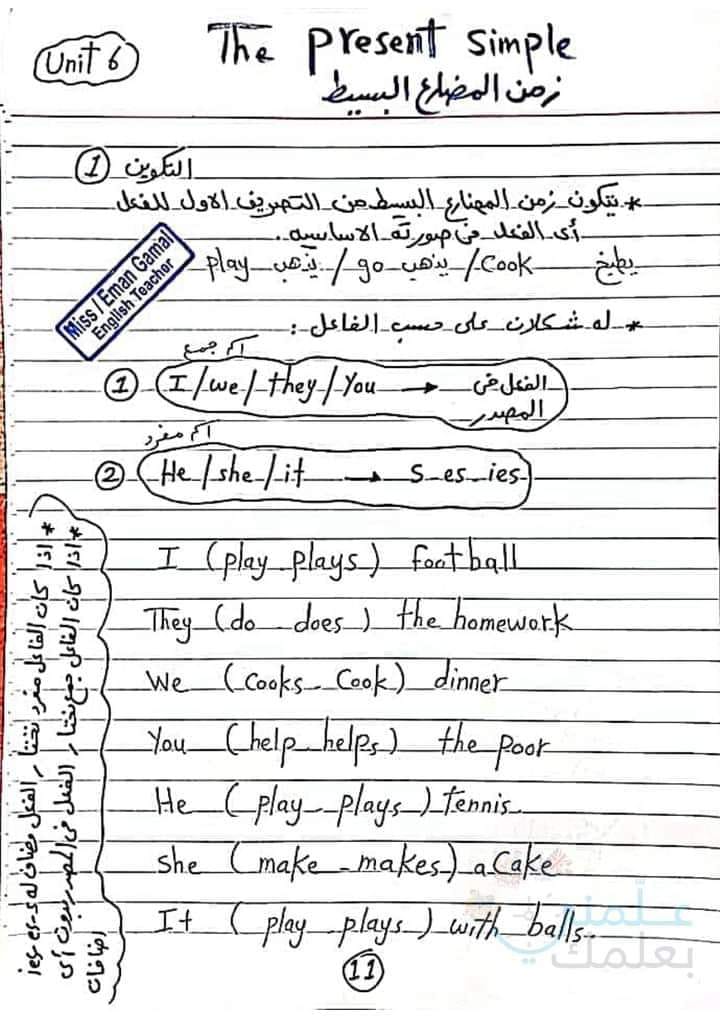 Unit 6
The present simple
زمن المضارع البسيط
1 التكوين
* يتكون زمن المضارع البسيط من التصريف الاول للفعل
أى الفعل فى صورته الاساسيه.
play يذهب / go يذهب / Cook يطبخ
Miss / Eman Gamal
English Teacher
* له شكلان على حسب الفاعل :
اسم جمع
1 I / we / they / You → الفعل فى
المصدر
اسم مفرد
2 He / she / it → s - es - ies
I (play - plays) football
They (do - does) the homework
We (Cooks - Cook) dinner
You (help - helps) the poor
He (play - plays) tennis
she (make - makes) a Cake
It (play - plays) with balls.
* اذا كان الفاعل مفرد نختار الفعل مضاف له s - es - ies
* اذا كان الفاعل جمع نختار الفعل فى المصدر بدون أى
اضافات
علمني
بعلمك
11